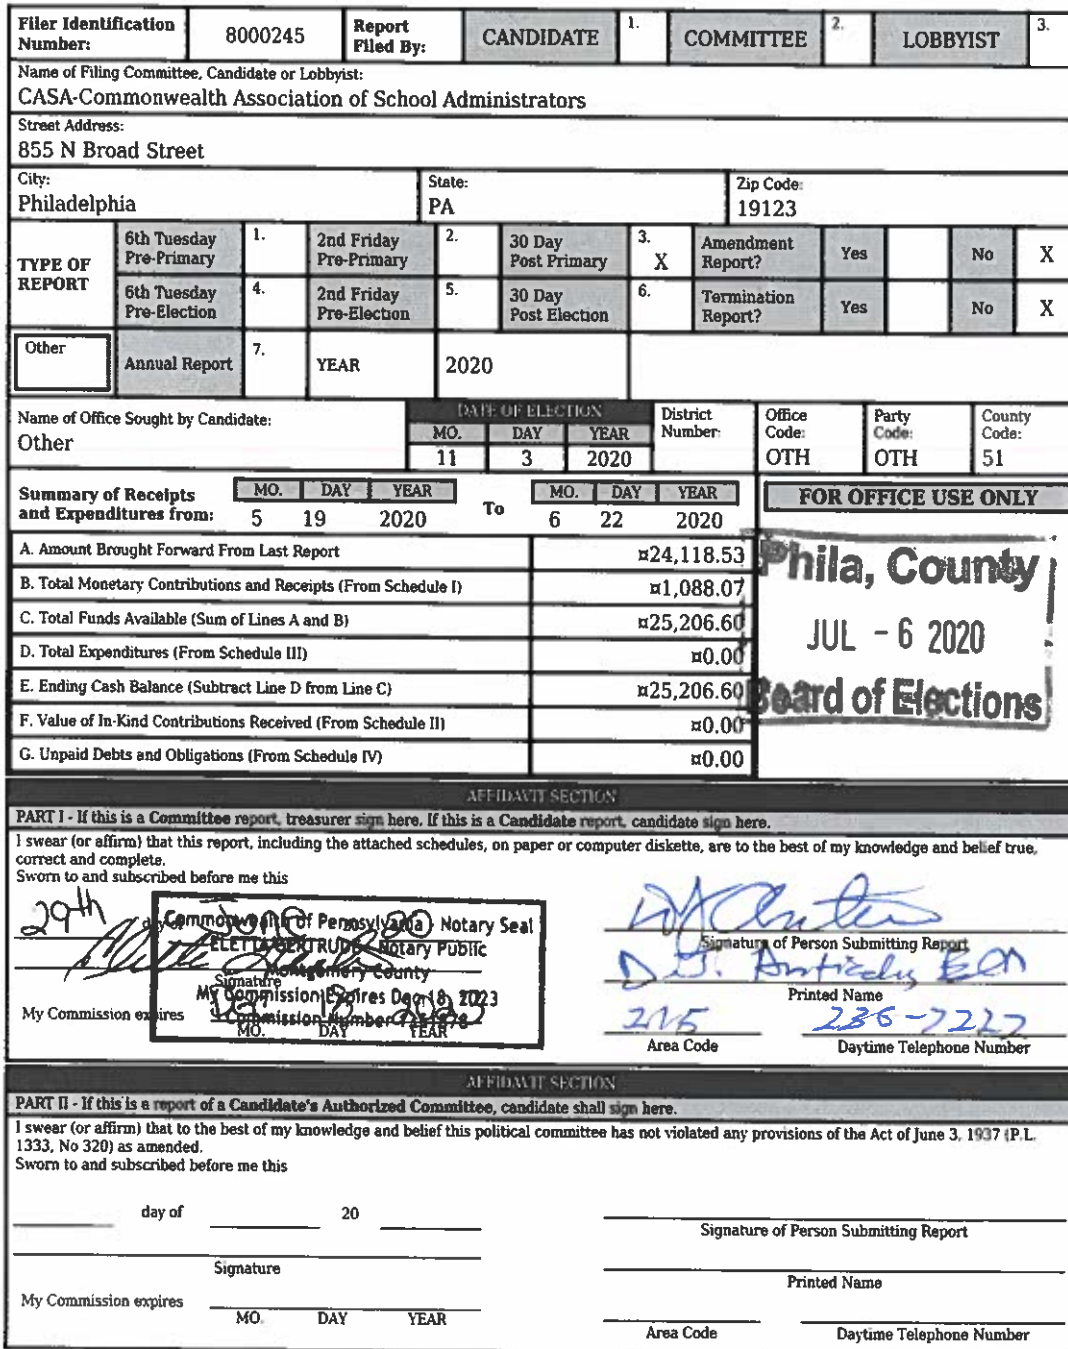 Filer Identification Number: 8000245 Report Filed By: CANDIDATE 1. COMMITTEE 2. LOBBYIST 3.
Name of Filing Committee, Candidate or Lobbyist:
CASA-Commonwealth Association of School Administrators
Street Address:
855 N Broad Street
City: State: Zip Code:
Philadelphia PA 19123
TYPE OF REPORT
6th Tuesday Pre-Primary 1. 2nd Friday Pre-Primary 2. 30 Day Post Primary 3. X Amendment Report? Yes No X
6th Tuesday Pre-Election 4. 2nd Friday Pre-Election 5. 30 Day Post Election 6. Termination Report? Yes No X
Other Annual Report 7. YEAR 2020
Name of Office Sought by Candidate:
Other
DATE OF ELECTION
MO. DAY YEAR
11 3 2020
District Number:
Office Code: OTH
Party Code: OTH
County Code: 51
Summary of Receipts and Expenditures from:
MO. DAY YEAR To MO. DAY YEAR
5 19 2020 6 22 2020
FOR OFFICE USE ONLY
A. Amount Brought Forward From Last Report ¤24,118.53
B. Total Monetary Contributions and Receipts (From Schedule I) ¤1,088.07
C. Total Funds Available (Sum of Lines A and B) ¤25,206.60
D. Total Expenditures (From Schedule III) ¤0.00
E. Ending Cash Balance (Subtract Line D from Line C) ¤25,206.60
F. Value of In-Kind Contributions Received (From Schedule II) ¤0.00
G. Unpaid Debts and Obligations (From Schedule IV) ¤0.00
Phila, County
JUL - 6 2020
Board of Elections
AFFIDAVIT SECTION
PART I - If this is a Committee report, treasurer sign here. If this is a Candidate report, candidate sign here.
I swear (or affirm) that this report, including the attached schedules, on paper or computer diskette, are to the best of my knowledge and belief true,
correct and complete.
Sworn to and subscribed before me this
29th day of June 20
Commonwealth of Pennsylvania Notary Seal
ELETTA GERTRUDE Notary Public
Montgomery County
My Commission Expires Dec 18, 2023
Commission Number
Signature
My Commission expires
MO. DAY YEAR
Signature of Person Submitting Report
Printed Name
215 236-7227
Area Code Daytime Telephone Number
AFFIDAVIT SECTION
PART II - If this is a report of a Candidate's Authorized Committee, candidate shall sign here.
I swear (or affirm) that to the best of my knowledge and belief this political committee has not violated any provisions of the Act of June 3, 1937 (P.L.
1333, No 320) as amended.
Sworn to and subscribed before me this
day of 20
Signature of Person Submitting Report
Signature
Printed Name
My Commission expires
MO. DAY YEAR
Area Code Daytime Telephone Number